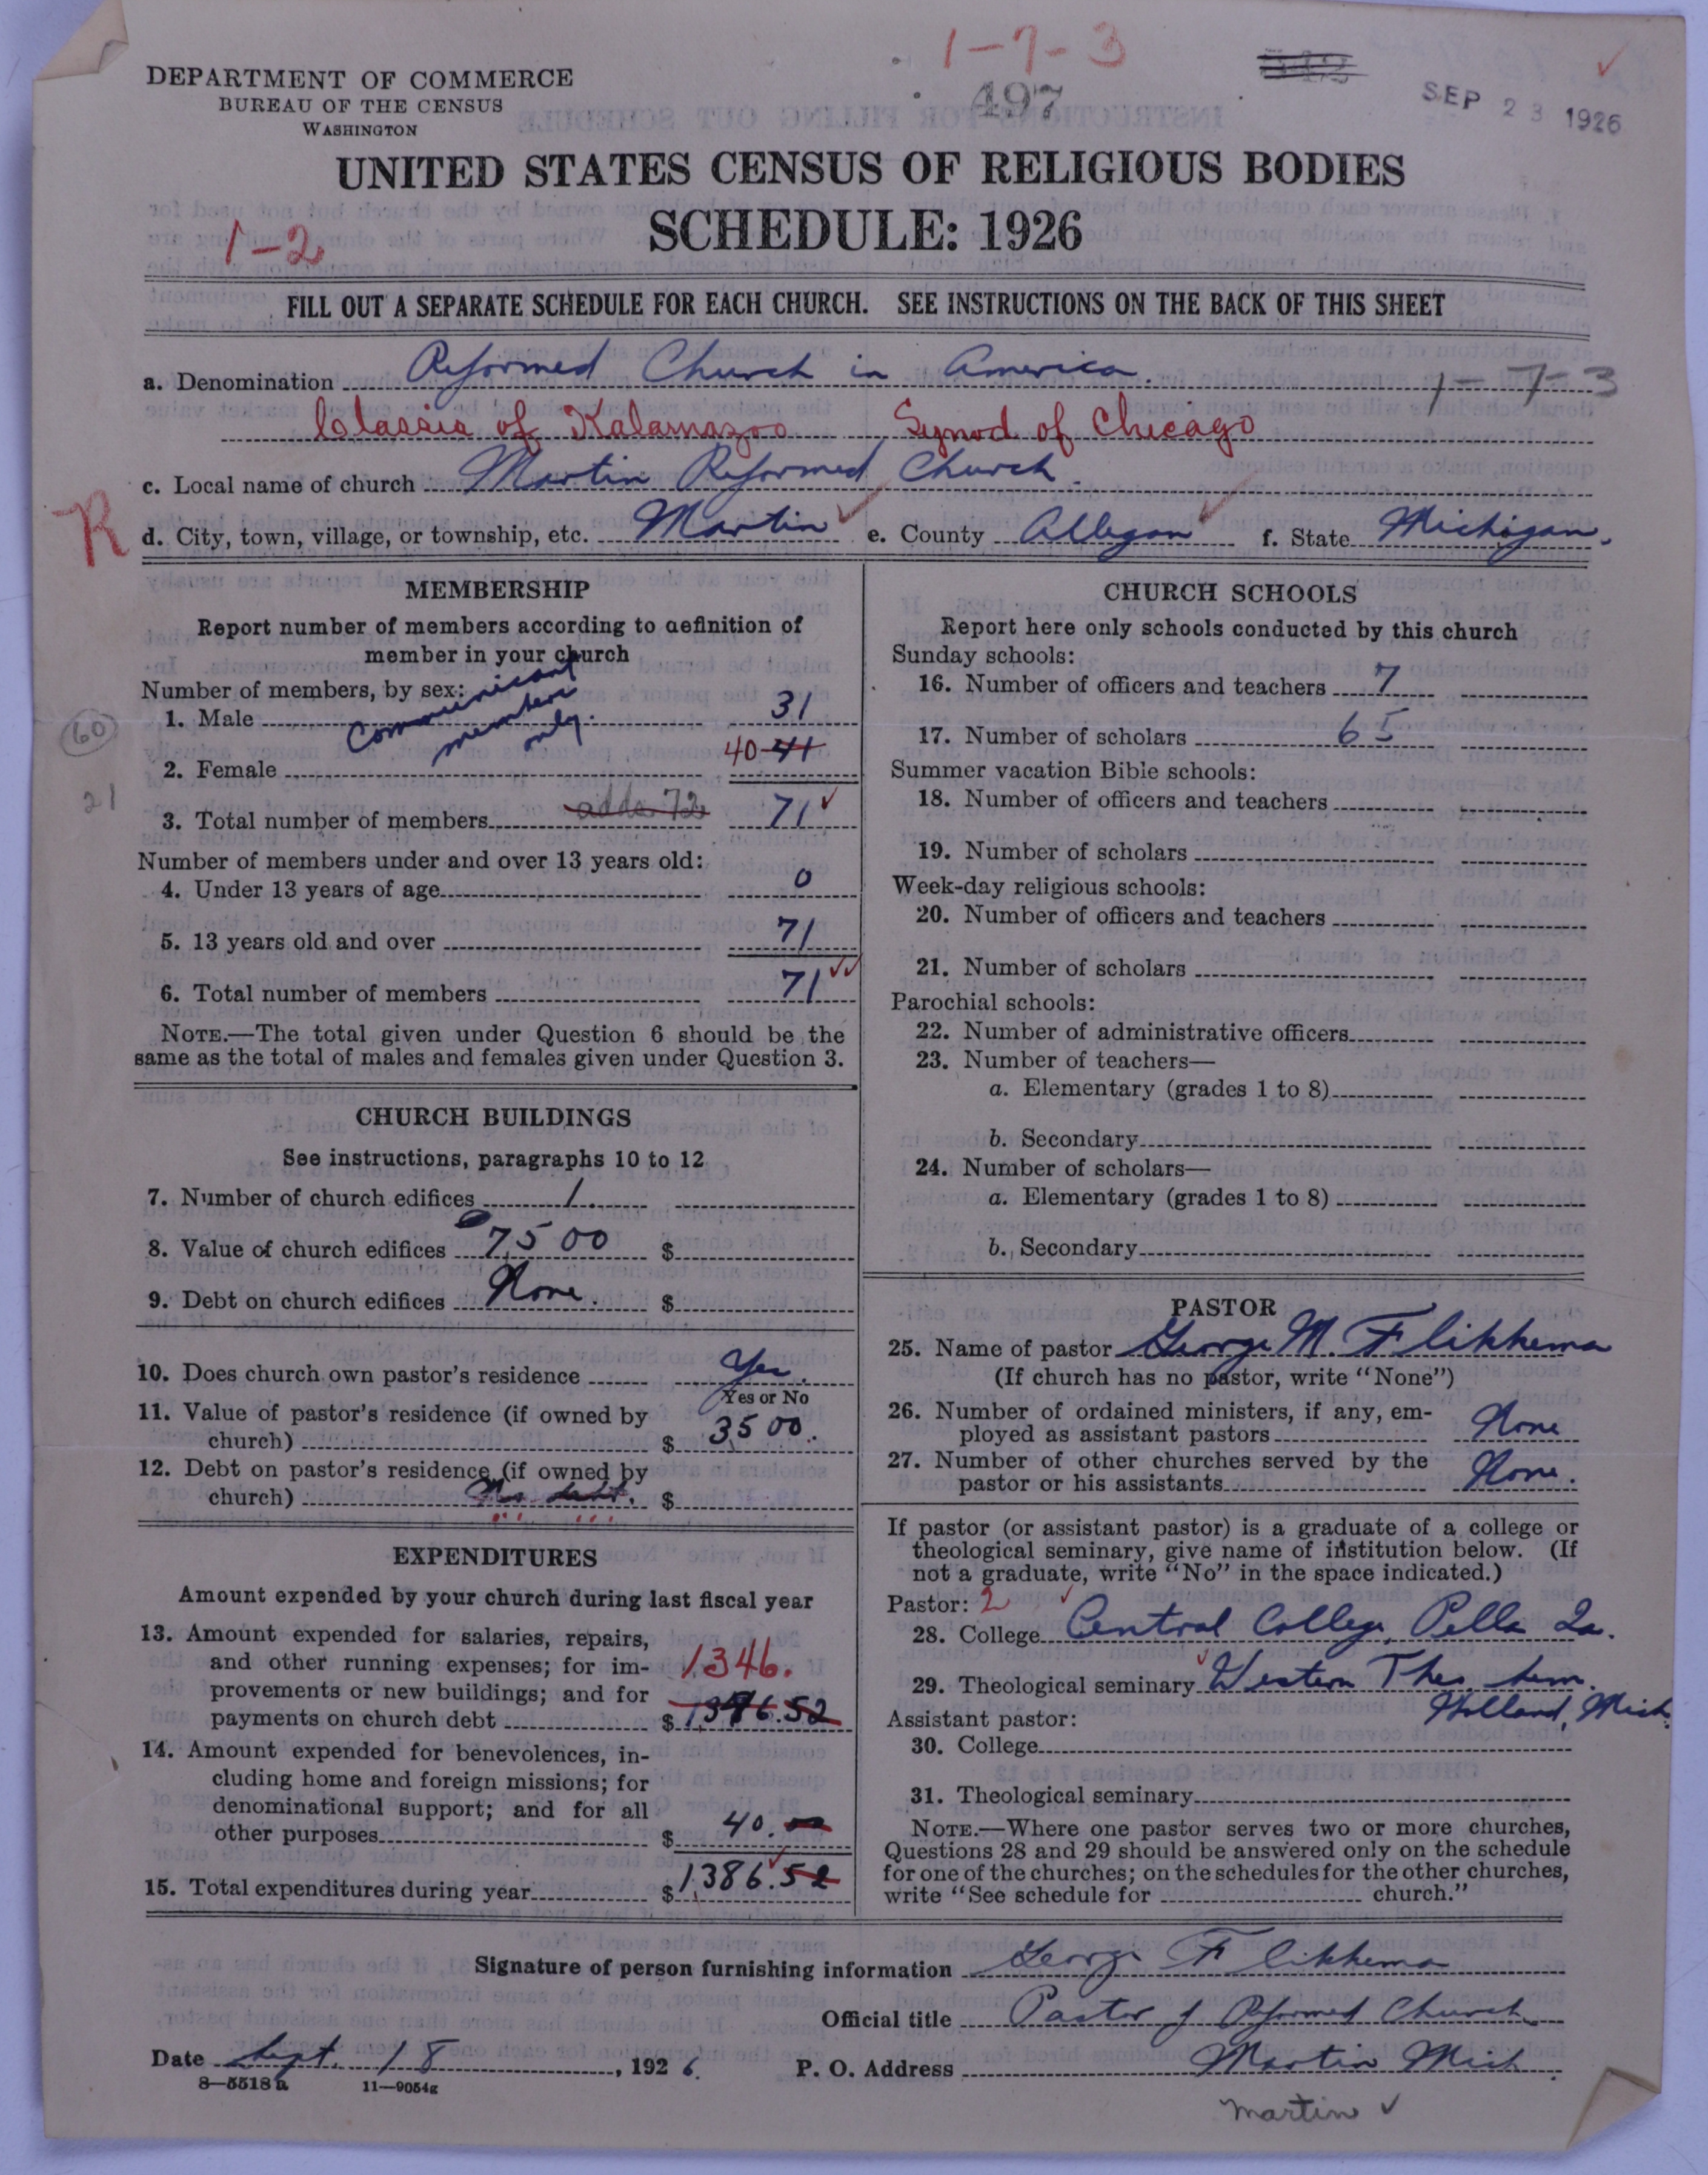 1-7-3
DEPARTMENT OF COMMERCE
BUREAU OF THE CENSUS
WASHINGTON
497
SEP 23 1926
UNITED STATES CENSUS OF RELIGIOUS BODIES
SCHEDULE: 1926
1-2
FILL OUT A SEPARATE SCHEDULE FOR EACH CHURCH. SEE INSTRUCTIONS ON THE BACK OF THIS SHEET
a. Denomination Reformed Church in America. 1-7-3
Classis of Kalamazoo Synod of Chicago
c. Local name of church Martin Reformed Church.
R
d. City, town, village, or township, etc. Martin e. County Allegan f. State Michigan.
MEMBERSHIP
Report number of members according to definition of
member in your church
Number of members, by sex:
Communicant members only.
1. Male 31
60
2. Female 40 41
21
3. Total number of members adds 72 71
Number of members under and over 13 years old:
4. Under 13 years of age 0
5. 13 years old and over 71
6. Total number of members 71
NOTE.—The total given under Question 6 should be the
same as the total of males and females given under Question 3.
CHURCH BUILDINGS
See instructions, paragraphs 10 to 12
7. Number of church edifices 1.
8. Value of church edifices 7,500 $
9. Debt on church edifices None. $
10. Does church own pastor's residence Yes.
Yes or No
11. Value of pastor's residence (if owned by
church) $ 3500.
12. Debt on pastor's residence (if owned by
church) No debt. $
EXPENDITURES
Amount expended by your church during last fiscal year
13. Amount expended for salaries, repairs,
and other running expenses; for im-
provements or new buildings; and for
payments on church debt $ 1346. 1,346.52
14. Amount expended for benevolences, in-
cluding home and foreign missions; for
denominational support; and for all
other purposes $ 40.00
15. Total expenditures during year $ 1,386.52
CHURCH SCHOOLS
Report here only schools conducted by this church
Sunday schools:
16. Number of officers and teachers 7
17. Number of scholars 65
Summer vacation Bible schools:
18. Number of officers and teachers
19. Number of scholars
Week-day religious schools:
20. Number of officers and teachers
21. Number of scholars
Parochial schools:
22. Number of administrative officers
23. Number of teachers—
a. Elementary (grades 1 to 8)
b. Secondary
24. Number of scholars—
a. Elementary (grades 1 to 8)
b. Secondary
PASTOR
25. Name of pastor George M. Flikkema
(If church has no pastor, write "None")
26. Number of ordained ministers, if any, em-
ployed as assistant pastors None
27. Number of other churches served by the
pastor or his assistants None.
If pastor (or assistant pastor) is a graduate of a college or
theological seminary, give name of institution below. (If
not a graduate, write "No" in the space indicated.)
Pastor: 2
28. College Central College, Pella Ia.
29. Theological seminary Western Theo. Sem.
Holland, Mich.
Assistant pastor:
30. College
31. Theological seminary
NOTE.—Where one pastor serves two or more churches,
Questions 28 and 29 should be answered only on the schedule
for one of the churches; on the schedules for the other churches,
write "See schedule for church."
Signature of person furnishing information George Flikkema
Official title Pastor of Reformed Church
Date Sept. 18, 1926. P. O. Address Martin Mich.
8—5518a 11—9054g
Martin